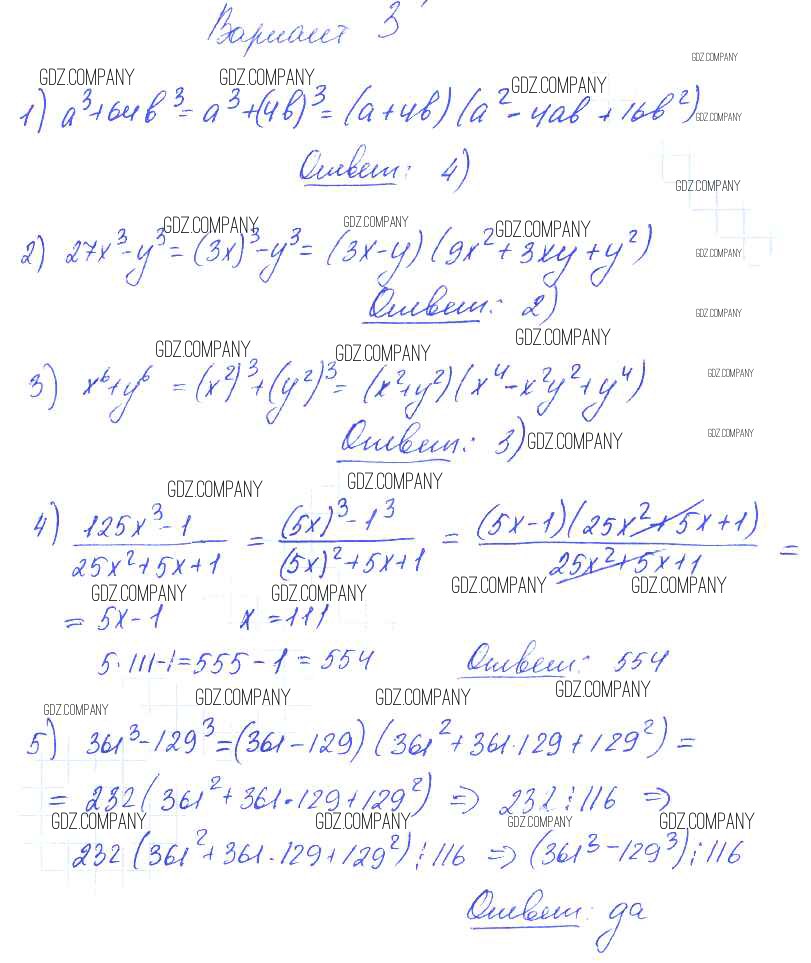 Вариант 3
GDZ.COMPANY GDZ.COMPANY GDZ.COMPANY GDZ.COMPANY
1) a³+64b³=a³+(4b)³=(a+4b)(a²-4ab+16b²) GDZ.COMPANY
Ответ: 4)
GDZ.COMPANY
GDZ.COMPANY GDZ.COMPANY GDZ.COMPANY
2) 27x³-y³=(3x)³-y³=(3x-y)(9x²+3xy+y²) GDZ.COMPANY
Ответ: 2) GDZ.COMPANY
GDZ.COMPANY GDZ.COMPANY GDZ.COMPANY
3) x⁶+y⁶=(x²)³+(y²)³=(x²+y²)(x⁴-x²y²+y⁴) GDZ.COMPANY
Ответ: 3) GDZ.COMPANY GDZ.COMPANY
GDZ.COMPANY GDZ.COMPANY
4) (125x³-1)/(25x²+5x+1) = ((5x)³-1³)/((5x)²+5x+1) = ((5x-1)(25x²+5x+1))/(25x²+5x+1) =
GDZ.COMPANY GDZ.COMPANY GDZ.COMPANY GDZ.COMPANY
= 5x-1 x=111
5·111-1=555-1=554 Ответ: 554
GDZ.COMPANY GDZ.COMPANY GDZ.COMPANY GDZ.COMPANY
5) 361³-129³=(361-129)(361²+361·129+129²)=
= 232(361²+361·129+129²) ⇒ 232⋮116 ⇒
GDZ.COMPANY GDZ.COMPANY GDZ.COMPANY GDZ.COMPANY
232(361²+361·129+129²)⋮116 ⇒ (361³-129³)⋮116
Ответ: да